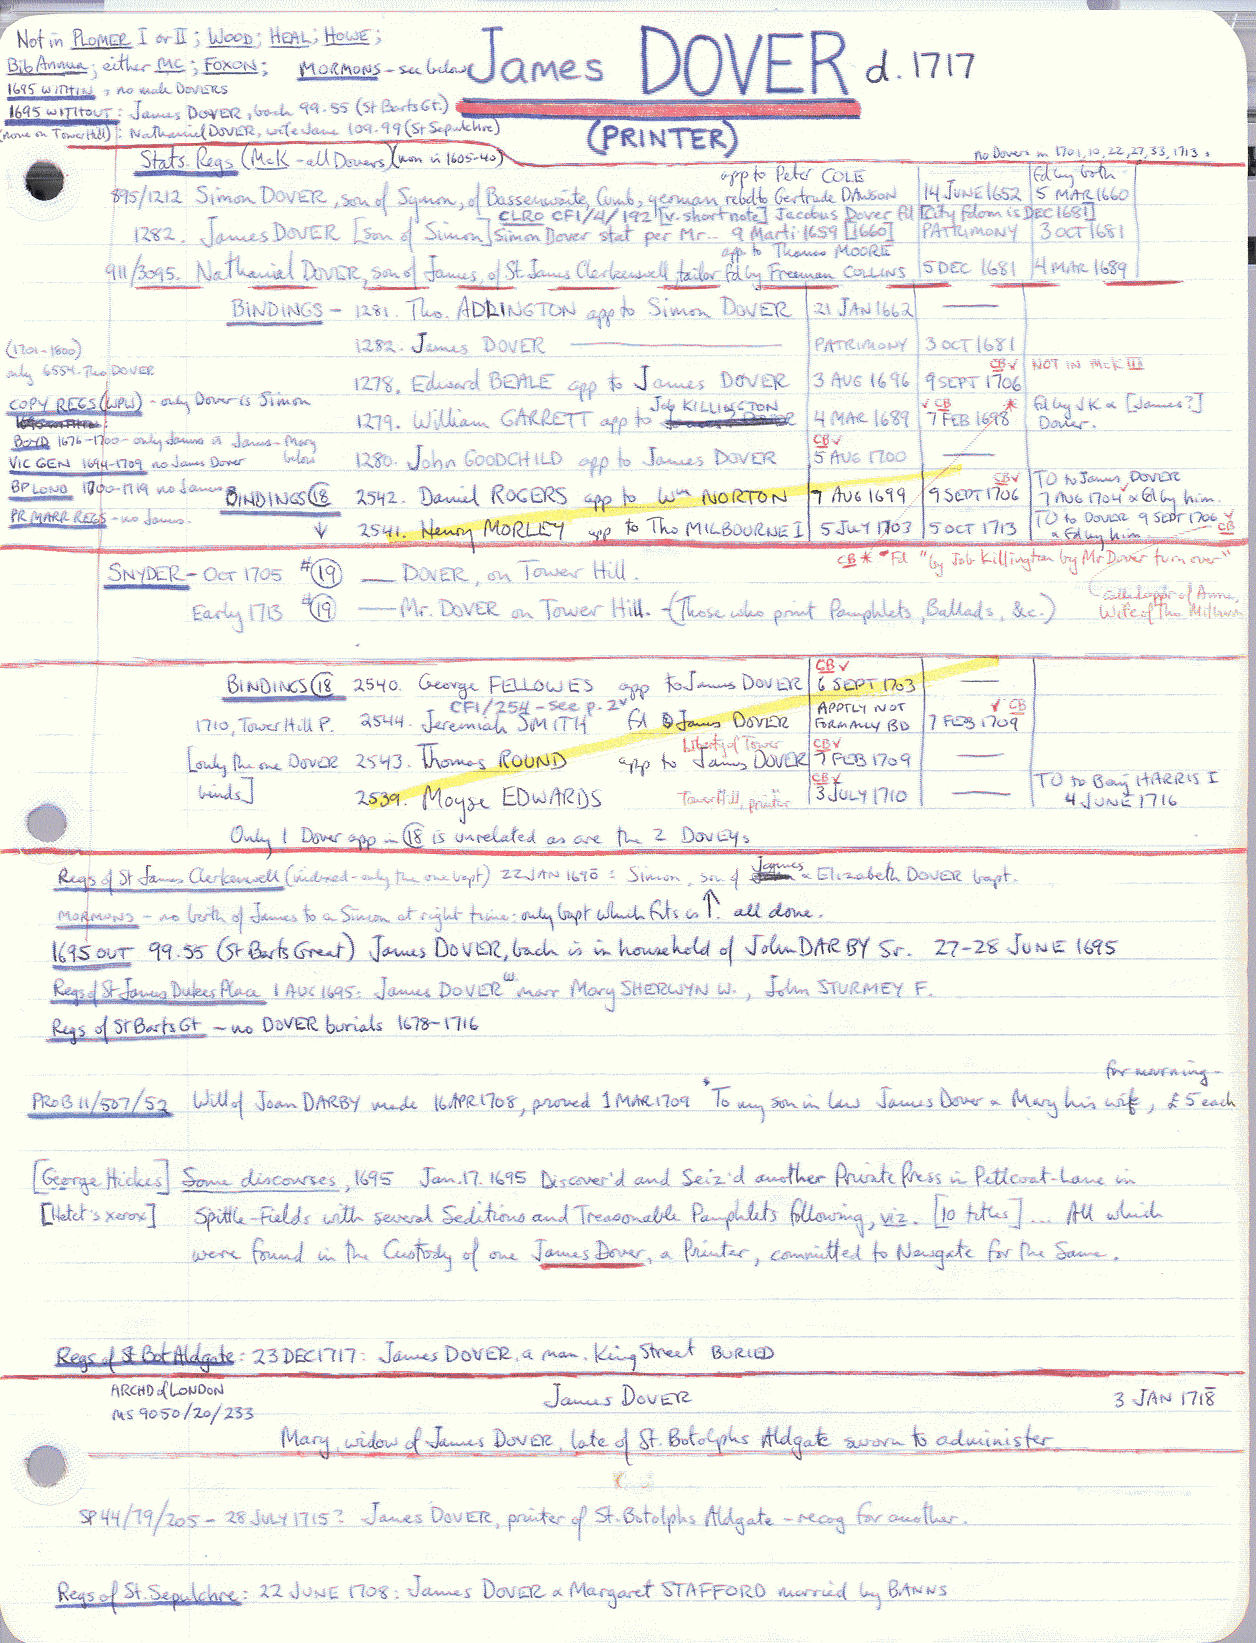 Not in PLOMER I or II; WOOD; HEAL; HOWE;
James DOVER d. 1717
Bib Annua; either MC; FOXON; MORMONS - see below
1695 WITHIN, no male DOVERS
1695 WITHOUT: James DOVER, bach 99.55 (St Barts Gt.)
(none on Tower Hill): Nathaniel DOVER, wife Jane 109.99 (St Sepulchre)
(PRINTER)
Stats. Regs (McK - all Dovers) (non in 1605-40)
no Dovers in 1701, 10, 22, 27, 33, 1713.
app to Peter COLE
Fd by both
895/1212 Simon DOVER, son of Symon, of Bassenwaite, Cumb, yeoman rebd to Gertrude DAWSON 14 JUNE 1652 5 MAR 1660
CLRO CF1/4/192 [v. short note] Jacobus Dover fd [City fdom is DEC 1681]
1282. James DOVER [son of Simon] Simon Dover stat per Mr... 9 Marti 1659 [1660] PATRIMONY 3 OCT 1681
app to Thomas MOORE
911/3095. Nathanial DOVER, son of James, of St James Clerkenwell tailor fd by Freeman COLLINS 5 DEC 1681 4 MAR 1689
BINDINGS - 1281. Tho. ADDINGTON app to Simon DOVER 21 JAN 1662 —
(1701-1800)
1282. James DOVER — PATRIMONY 3 OCT 1681
only 6554. Tho DOVER
CB ✓ NOT IN McK III
1278. Edward BEALE app to James DOVER 3 AUG 1696 9 SEPT 1706
COPY REGS (WPW) - only Dover is Simon
Job KILLINGTON ✓ CB * Fd by JK & [James?]
1279. William GARRETT app to 4 MAR 1689 7 FEB 1698 Dover.
BOYD 1676-1700 - only James is James - Mary below
CB ✓
VIC GEN 1694-1709 no James Dover
1280. John GOODCHILD app to James DOVER 5 AUG 1700 —
BP LOND 1700-1719 no James
CB ✓ TO to James DOVER
BINDINGS 18 2542. Daniel ROGERS app to Wm NORTON 7 AUG 1699 9 SEPT 1706 7 AUG 1704 & fd by him.
PR MARR REGS - no James.
TO to DOVER 9 SEPT 1706 ✓
↓ 2541. Henry MORLEY app to Tho MILBOURNE I 5 JULY 1703 5 OCT 1713 & Fd by him. CB
CB * "Fd "by Job Killington by Mr Dover turn over"
SNYDER - Oct 1705 #19 — DOVER, on Tower Hill.
Early 1713 #19 — Mr. DOVER on Tower Hill. - (Those who print Pamphlets, Ballads, &c.)
of Anne, Wife of Tho Milbourn
CB ✓
BINDINGS 18 2540. George FELLOWES app to James DOVER 6 SEPT 1703 —
CF1/254 - see p. 2 ✓
APPTLY NOT ✓ CB
1710, Tower Hill P. 2544. Jeremiah SMITH fd James DOVER FORMALLY BD 7 FEB 1709
Liberty of Tower CB ✓
[only the one DOVER 2543. Thomas ROUND app to James DOVER 7 FEB 1709 —
CB ✓ TO to Benj HARRIS I
binds] 2539. Moyse EDWARDS Tower Hill, printer 3 JULY 1710 — 4 JUNE 1716
Only 1 Dover app in 18 is unrelated as are the 2 DOVEYs
James
Regs of St James Clerkenwell (indexed - only the one bapt) 22 JAN 1690: Simon, son of & Elizabeth DOVER bapt.
MORMONS - no birth of James to a Simon at right time: only bapt which fits is ↑. all done.
1695 OUT 99.55 (St Barts Great) James DOVER, bach is in household of John DARBY Sr. 27-28 JUNE 1695
Regs of St James Dukes Place 1 AUG 1695: James DOVER W marr Mary SHERWYN W., John STURMEY F.
Regs of St Barts Gt - no DOVER burials 1678-1716
for mourning -
PROB 11/507/52 Will of Joan DARBY made 16 APR 1708, proved 1 MAR 1709 "To my son in law James Dover & Mary his wife, £5 each
[George Hickes] Some discourses, 1695 Jan. 17. 1695 Discover'd and Seiz'd another Private Press in Petticoat-Lane in
[Hetet's xerox] Spittle-Fields with several Seditious and Treasonable Pamphlets following, viz. [10 titles] ... All which
were found in the Custody of one James Dover, a Printer, committed to Newgate for the Same.
Regs of St Bot Aldgate: 23 DEC 1717: James DOVER, a man. King Street BURIED
ARCHD of LONDON James DOVER 3 JAN 1718
MS 9050/20/233
Mary, widow of James DOVER, late of St. Botolphs Aldgate sworn to administer
SP 44/79/205 - 28 JULY 1715? James DOVER, printer of St. Botolphs Aldgate - recog for another.
Regs of St. Sepulchre: 22 JUNE 1708: James DOVER & Margaret STAFFORD married by BANNS